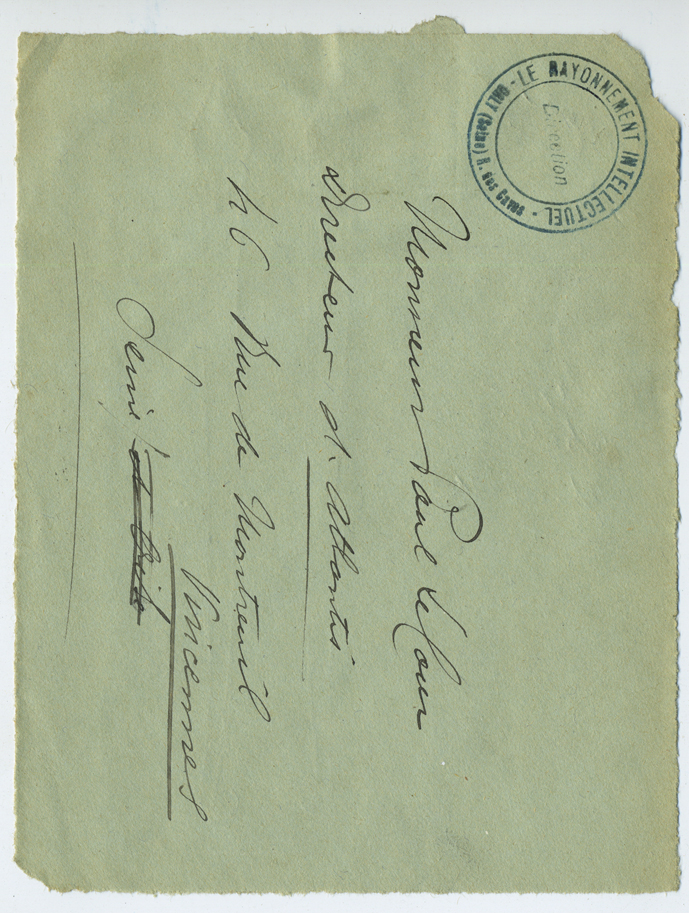 - LE RAYONNEMENT INTELLECTUEL -
ORLY (Seine) R. des Caves
Direction
Monsieur Paul Le Cour
Directeur d'Atlantis
40 Rue de Montreuil
Vincennes
Seine